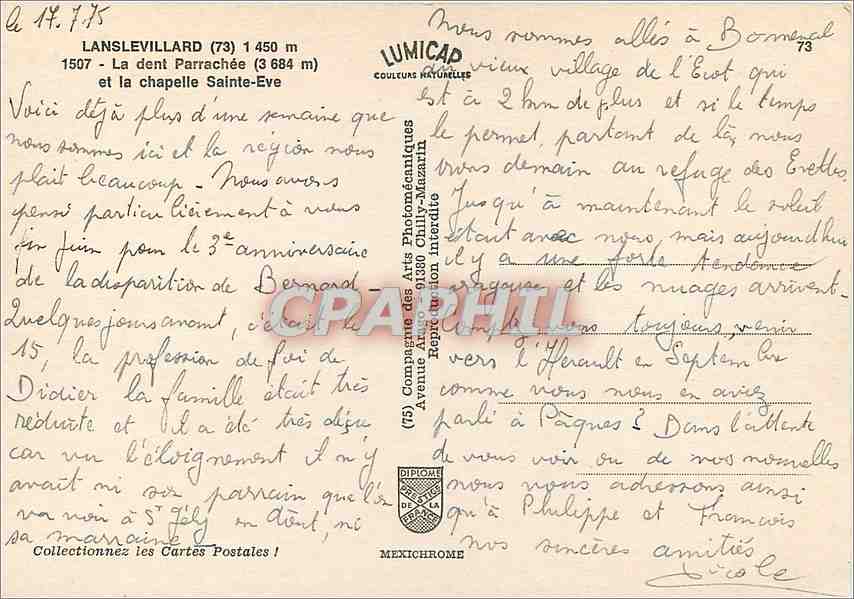 le 17.7.75
LANSLEVILLARD (73) 1 450 m
1507 - La dent Parrachée (3 684 m)
et la chapelle Sainte-Eve
Voici déjà plus d'une semaine que
nous sommes ici et la région nous
plait beaucoup - Nous avons
pensé particulièrement à vous
fin juin pour le 3e anniversaire
de la disparition de Bernard -
Quelques jours avant, c'était le
15, la profession de foi de
Didier la famille était très
réduite et il a été très déçu
car vu l'éloignement il n'y
avait ni son parrain que l'on
va voir à St Gély en Août, ni
sa marraine
Collectionnez les Cartes Postales !
LUMICAP
COULEURS NATURELLES
(75) Compagnie des Arts Photomécaniques
Avenue Arago - 91380 Chilly-Mazarin
Reproduction interdite
CPAPHIL
DIPLOME
PRESTIGE
DE LA
FRANCE
MEXICHROME
73
Nous sommes allés à Bonneval
au vieux village de l'Ecot qui
est à 2 km de plus et si le temps
le permet, partant de là, nous
irons demain au refuge des Evettes.
Jusqu'à maintenant le soleil
était avec nous, mais aujourd'hui
il y a une forte tendance
orageuse et les nuages arrivent -
Comptez vous toujours venir
vers l'Hérault en Septembre
comme vous nous en aviez
parlé à Pâques ? Dans l'attente
de vous voir ou de vos nouvelles
nous vous adressons ainsi
qu'à Philippe et François
nos sincères amitiés
Nicole